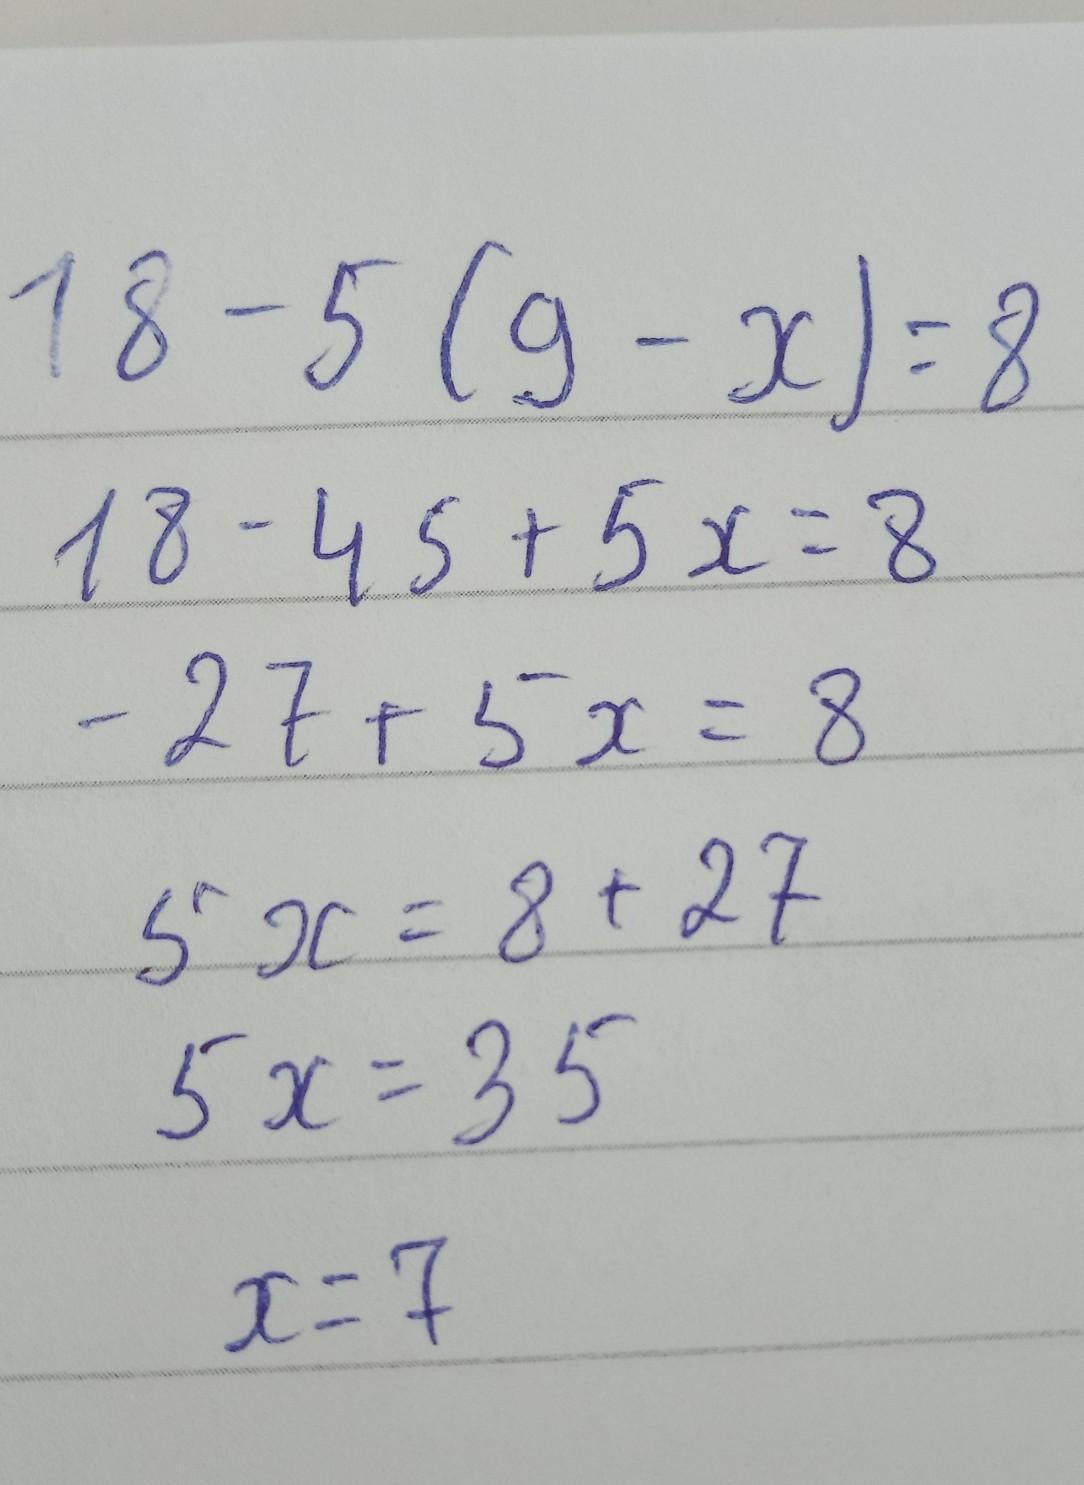 18 - 5 (9 - x) = 8
18 - 45 + 5x = 8
- 27 + 5x = 8
5x = 8 + 27
5x = 35
x = 7